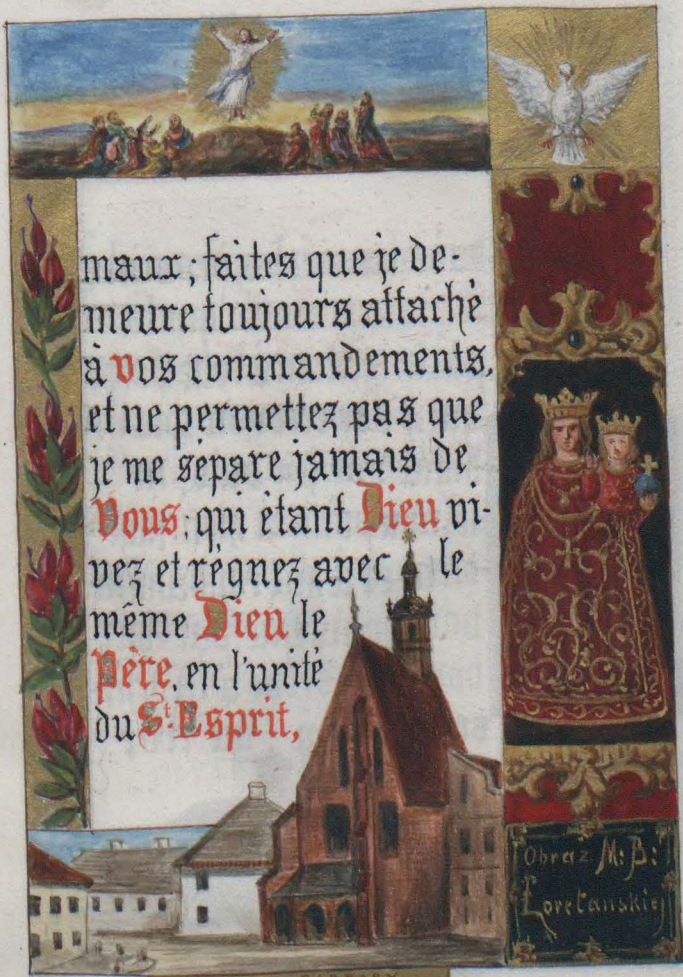 maux; faites que je de-
meure toujours attaché
à vos commandements,
et ne permettez pas que
je me sépare jamais de
Vous; qui étant Dieu vi-
vez et régnez avec le
même Dieu le
Père, en l'unité
du St. Esprit,
Obraz M: B:
Loretanskiej